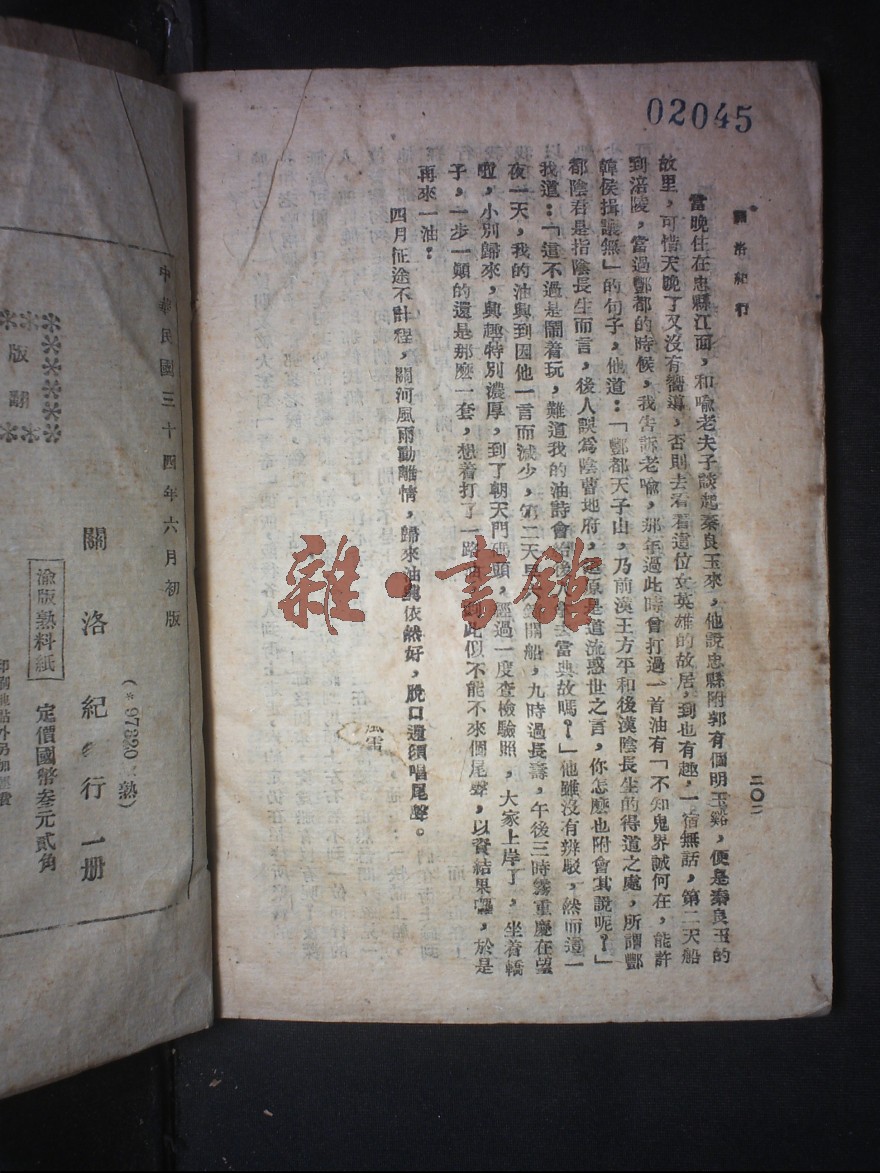 02045
關洛紀行
二〇二
當晚住在忠縣江面，和喻老夫子談起秦良玉來，他說忠縣附郭有個明玉谿，便是秦良玉的
故里，可惜天晚了又沒有嚮導，否則去看看這位女英雄的故居，到也有趣，一宿無話，第二天船
到涪陵，當過酆都的時候，我告訴老喻，那年過此時曾打過一首油有「不知鬼界誠何在，能許
韓侯揖讓無」的句子，他道：「酆都天子山，乃前漢王方平和後漢陰長生的得道之處，所謂酆
都陰君是指陰長生而言，後人誤爲陰曹地府，原是道流惑世之言，你怎麽也附會其說呢？」
我道：「這不過是鬧着玩，難道我的油詩會當典故嗎？」他雖沒有辨駁，然而這一
夜一天，我的油興到因他一言而減少，第二天開船，九時過長壽，午後三時霧重慶在望
啦，小別歸來，興趣特別濃厚，到了朝天門碼頭，經過一度查檢驗照，大家上岸了，坐着轎
子，一步一顚的還是那麽一套，想着打了一路油到此似不能不來個尾聲，以資結果囉，於是
再來一油：
四月征途不計程，關河風雨動離情，歸來油興依然好，脫口還須唱尾聲。
雜·書館
中華民國三十四年六月初版
(*97320 熟)
關洛紀行 一册
渝版熟料紙
定價國幣叁元貳角
版 翻